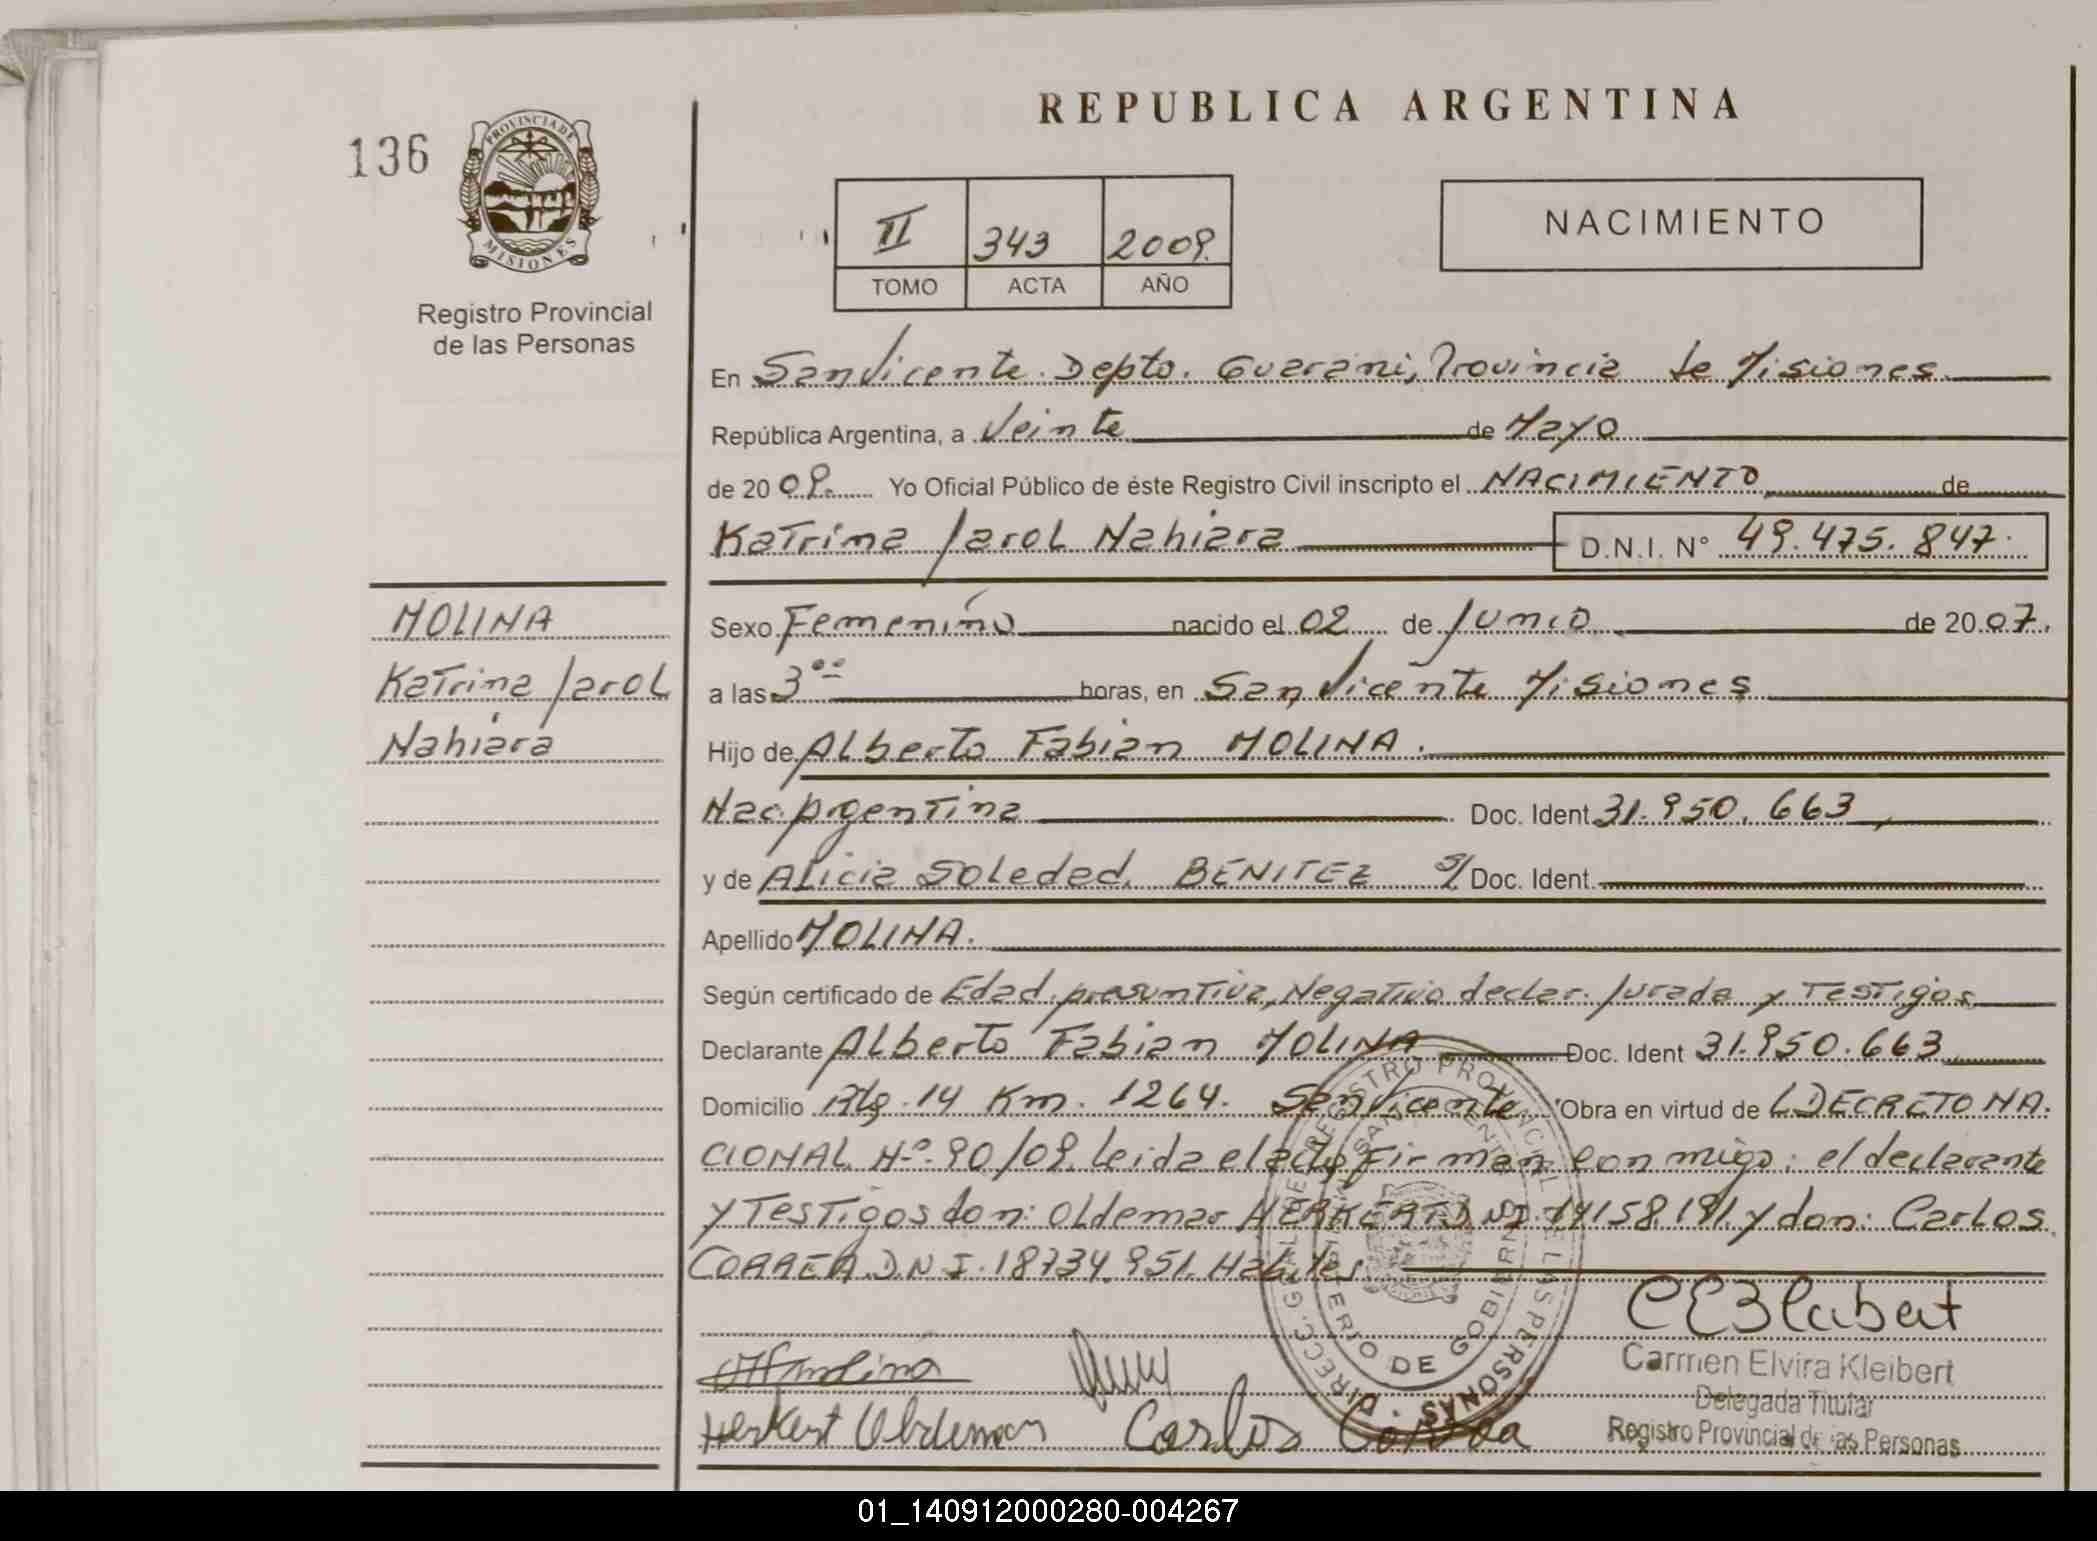 REPUBLICA ARGENTINA
136
PROVINCIA DE
MISIONES
Registro Provincial
de las Personas
II 343 2009.
TOMO ACTA AÑO
NACIMIENTO
En San Vicente Depto. Guarani, Provincia de Misiones
República Argentina, a Veinte de Mayo
de 20 09. Yo Oficial Público de éste Registro Civil inscripto el NACIMIENTO de
Katrina Jarol Nahiara D.N.I. N° 49.475.847.
MOLINA
Katrina Jarol
Nahiara
Sexo Femenino nacido el 02 de Junio de 20 07.
a las 3 00 horas, en San Vicente Misiones
Hijo de Alberto Fabian MOLINA.
Nac. Argentina Doc. Ident 31.950.663,
y de Alicia Soledad BENITEZ S/ Doc. Ident.
Apellido MOLINA.
Según certificado de Edad presuntiva, Negativo declar. Jurada y Testigos
Declarante Alberto Fabian MOLINA Doc. Ident 31.950.663
Domicilio Rta. 14 Km. 1264. San Vicente. Obra en virtud de L DECRETO NA.
CIONAL Nº 90/09. Leida el acta Firman conmigo: el declarante
y Testigos don: Oldemar HERKERT D.N.I. 14158.191. y don: Carlos
CORREA. D.N.I. 18734.951. Habiles
DIRECC. GRAL. DE REGISTRO PROVINCIAL DE LAS PERSONAS
MINISTERIO DE GOBIERNO
Herkert Oldemar Carlos Correa
Carmen Elvira Kleibert
Delegada Titular
Registro Provincial de las Personas
01_140912000280-004267